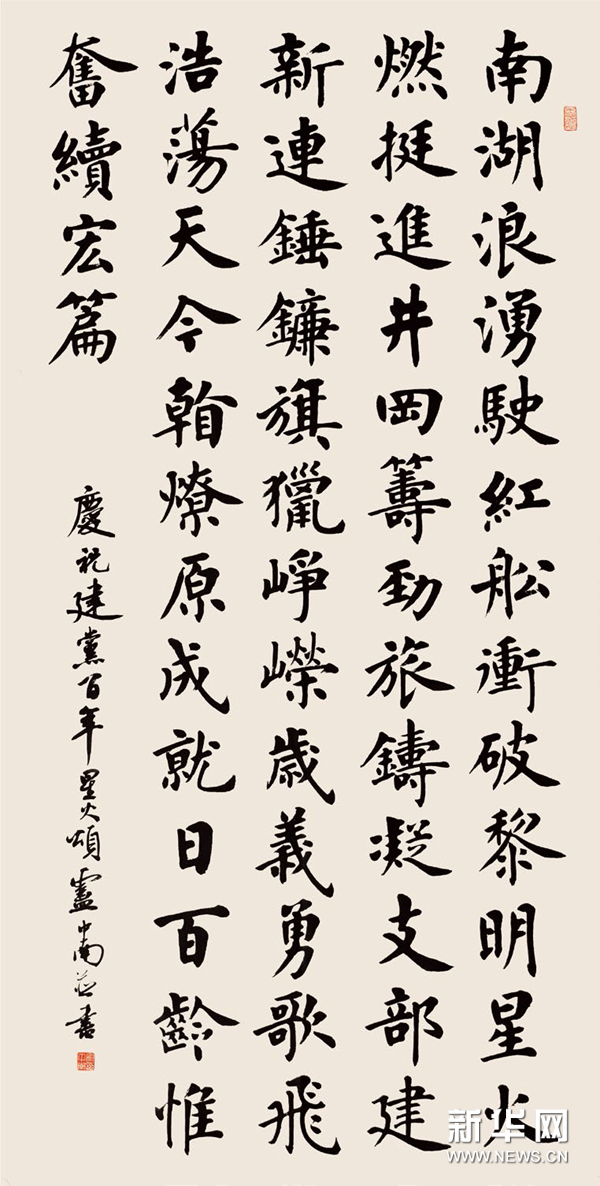 南湖浪湧駛紅舩衝破黎明星火
燃挺進井岡籌勁旅鑄凝支部建
新連錘鐮旗獵崢嶸歲義勇歌飛
浩蕩天今翰燎原成就日百齡惟
奮續宏篇
慶祝建黨百年星火頌盧中南並書
新华网
WWW.NEWS.CN